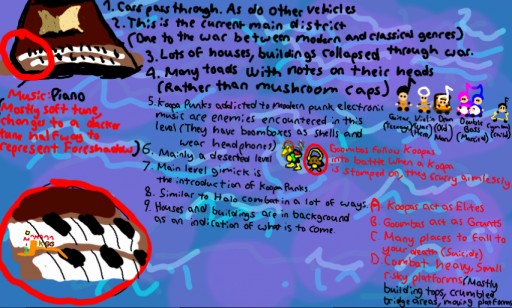 1. Cars pass through. As do other vehicles
2. This is the current main district
(One to the war between modern and classical genres)
3. Lots of houses, buildings collapsed through war.
4. Many toads with notes on their heads
(Rather than mushroom caps)
5. Koopa Punks addicted to modern punk electronic
music are enemies encountered in this
level (They have boomboxes as shells and
wear headphones)
6. Mainly a deserted level
7. Main level gimick is
the introduction of Koopa Punks.
8. Similar to Halo combat in a lot of ways.
9. Houses and buildings are in background
as an indication of what is to come.
Music: Piano
Mostly soft tune,
change to a darker
tune halfway to
represent Foreshadow
Guitar
Violin
Drum
(Old
Man)
Double
Bass
(Musical)
Cymbal
(Child)
Goombas follow Koopas
into battle when a Koopa
is stomped on, they scurry aimlessly
A Koopas act as Elites
B. Goombas act as Grunts
C. Many places to fall to
your death (Suicide)
D. Combat heavy, Small
risky platforms (Mostly
building tops, crumbled
bridge areas, moving platforms